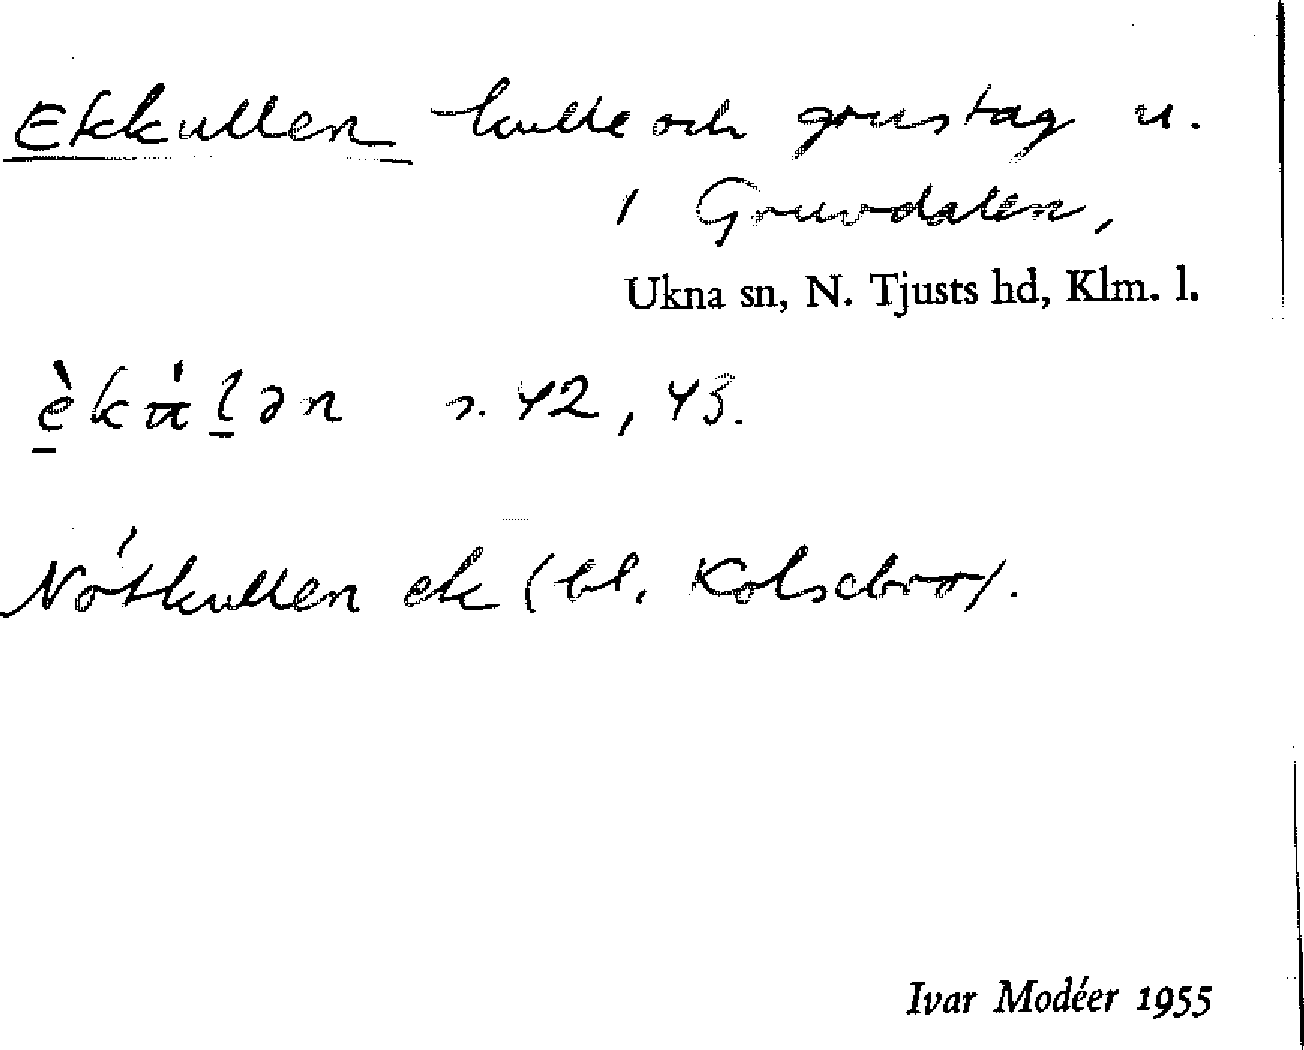 Ekkullen kulle och grustag u.
i Gruvdalen,
Ukna sn, N. Tjusts hd, Klm. l.
s. 42, 43.
Nótkullen ek (bl. Kolsebro).
Ivar Modéer 1955